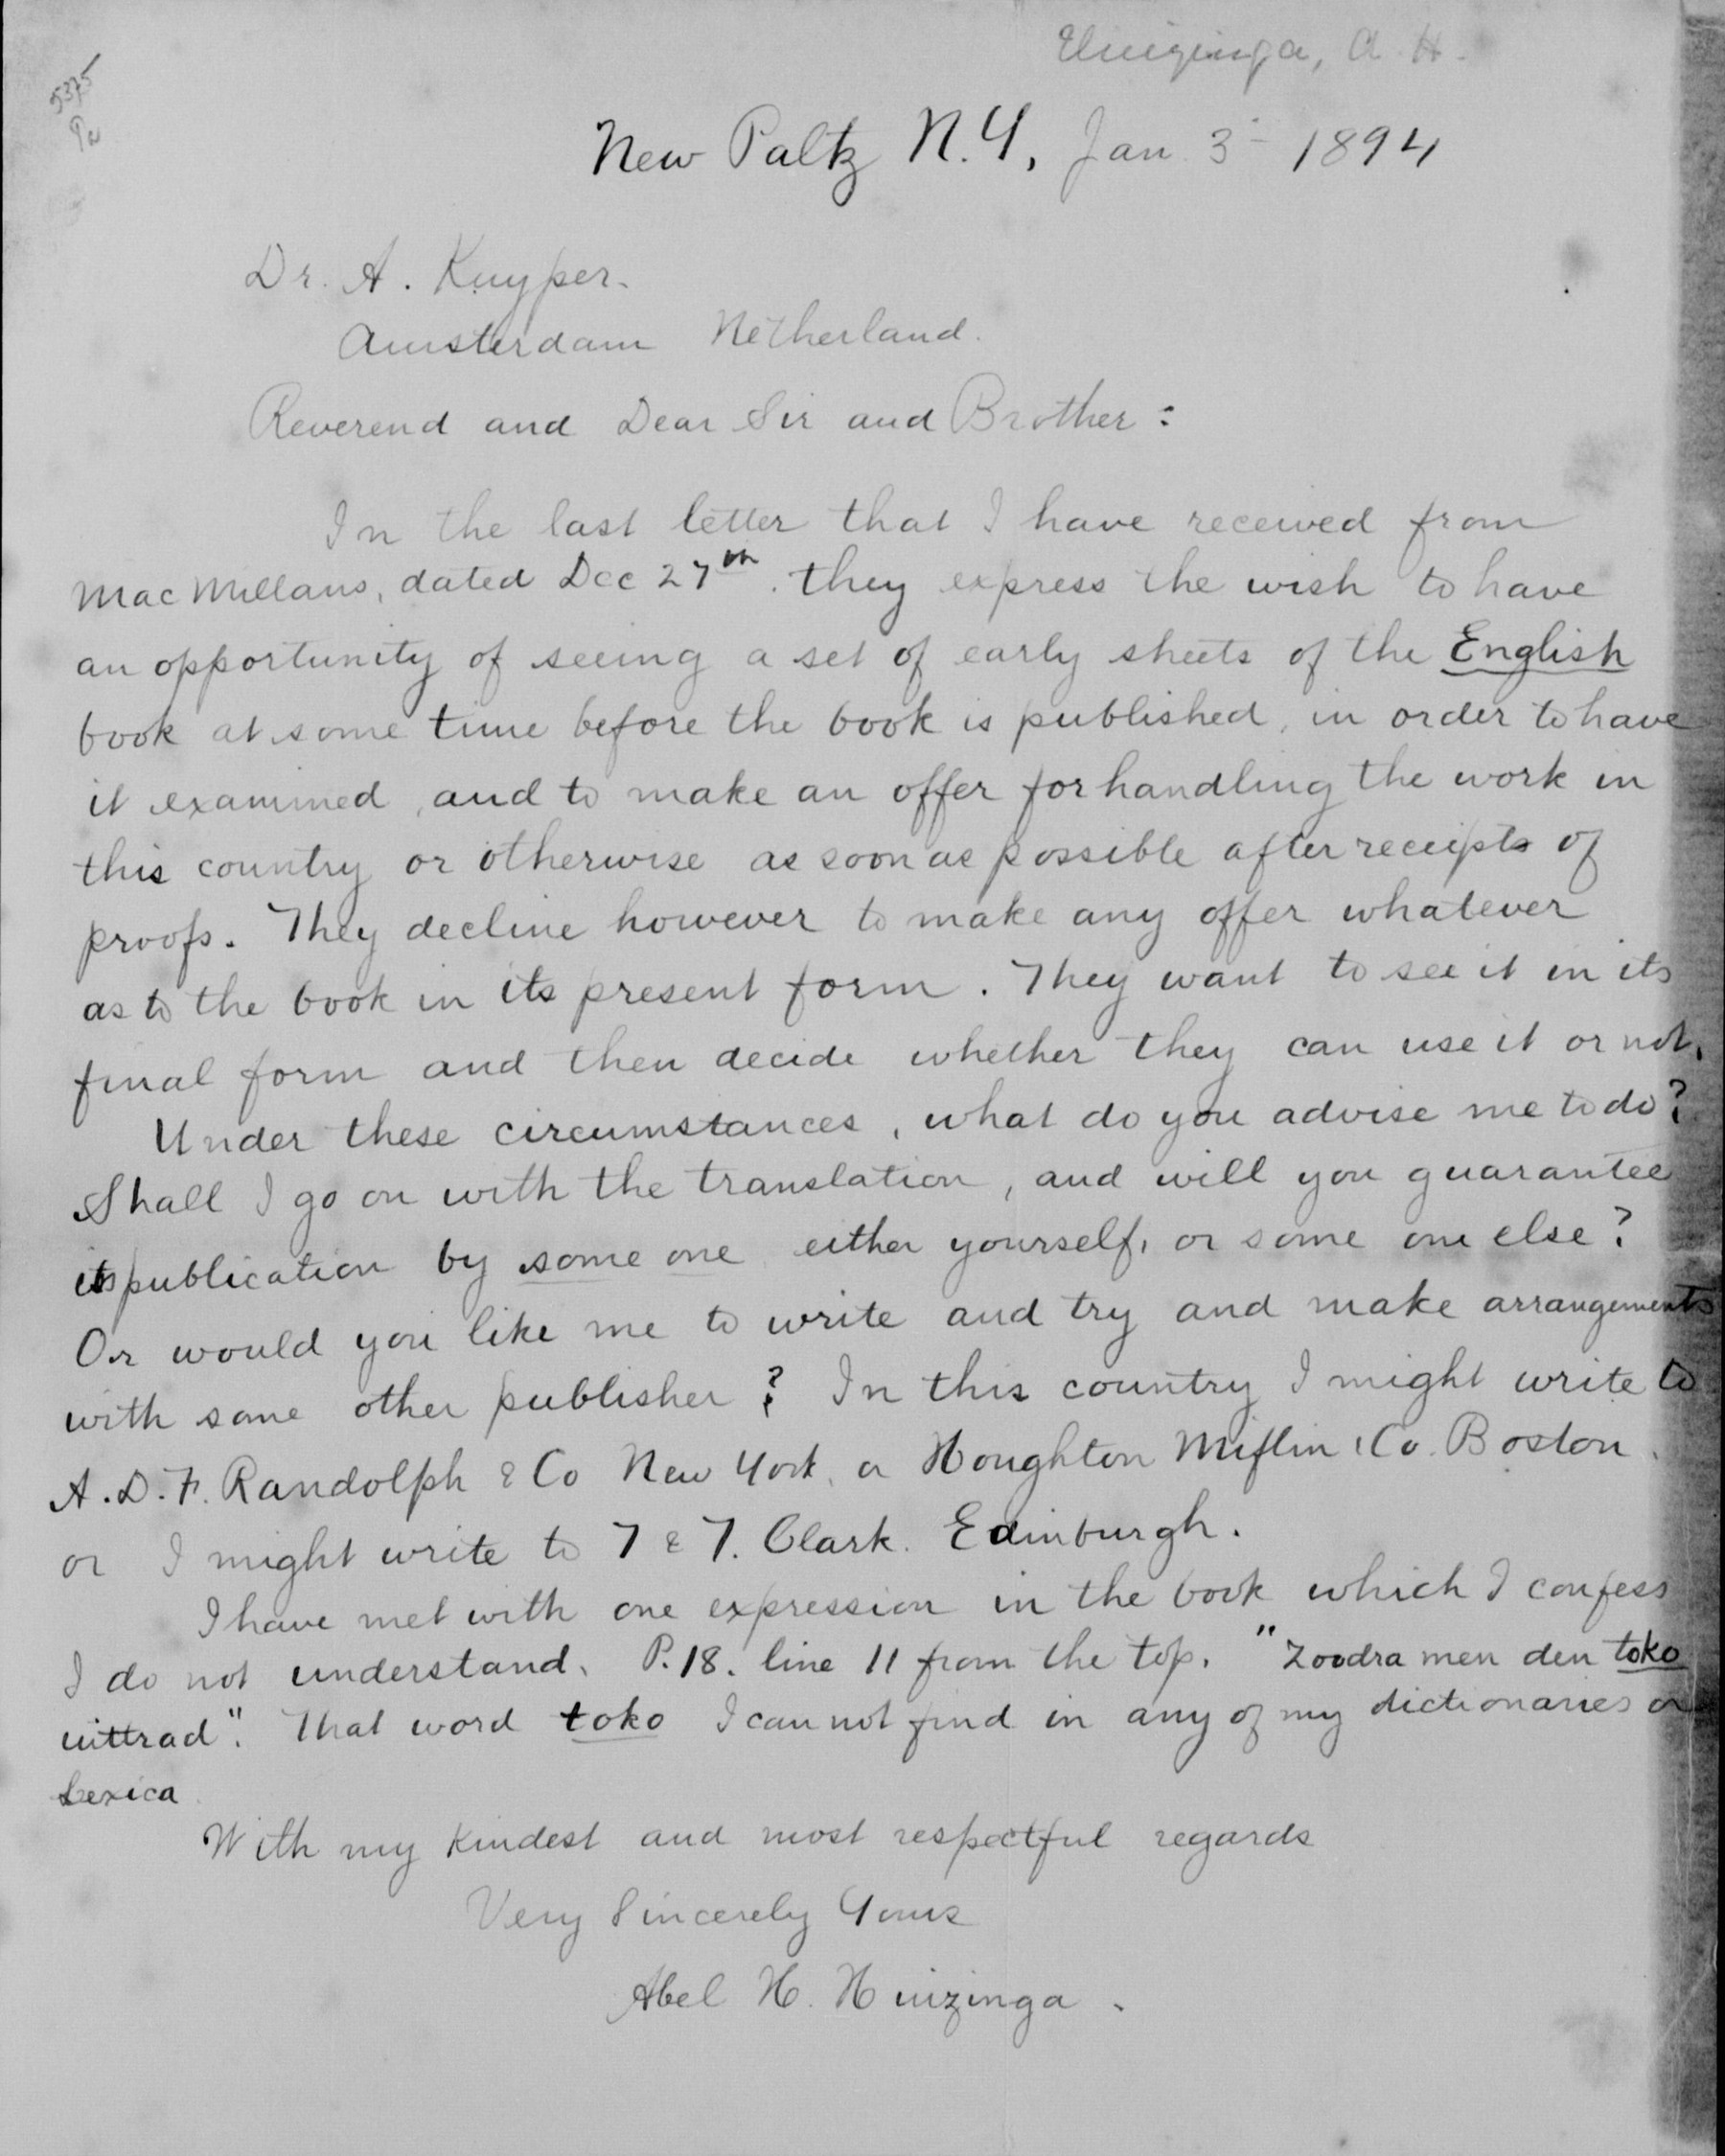 Huizinga, A. H.
5375
New Paltz N.Y, Jan 3 - 1894
Dr. A. Kuyper.
Amsterdam Netherland.
Reverend and Dear Sir and Brother :
In the last letter that I have received from
MacMillans, dated Dec 27th. they express the wish to have
an opportunity of seeing a set of early sheets of the English
book at some time before the book is published, in order to have
it examined, and to make an offer for handling the work in
this country or otherwise as soon as possible after receipts of
proofs. They decline however to make any offer whatever
as to the book in its present form. They want to see it in its
final form and then decide whether they can use it or not.
Under these circumstances, what do you advise me to do?
Shall I go on with the translation, and will you guarantee
its publication by some one either yourself, or some one else?
Or would you like me to write and try and make arrangements
with some other publisher? In this country I might write to
A. D. F. Randolph & Co New York, or Houghton Miflin & Co. Boston.
or I might write to T & T. Clark. Edinburgh.
I have met with one expression in the book which I confess
I do not understand. P. 18. line 11 from the top. "Zoodra men den toko
uittrad". That word toko I can not find in any of my dictionaries or
Lexica
With my kindest and most respectful regards
Very Sincerely Yours
Abel H. Huizinga.